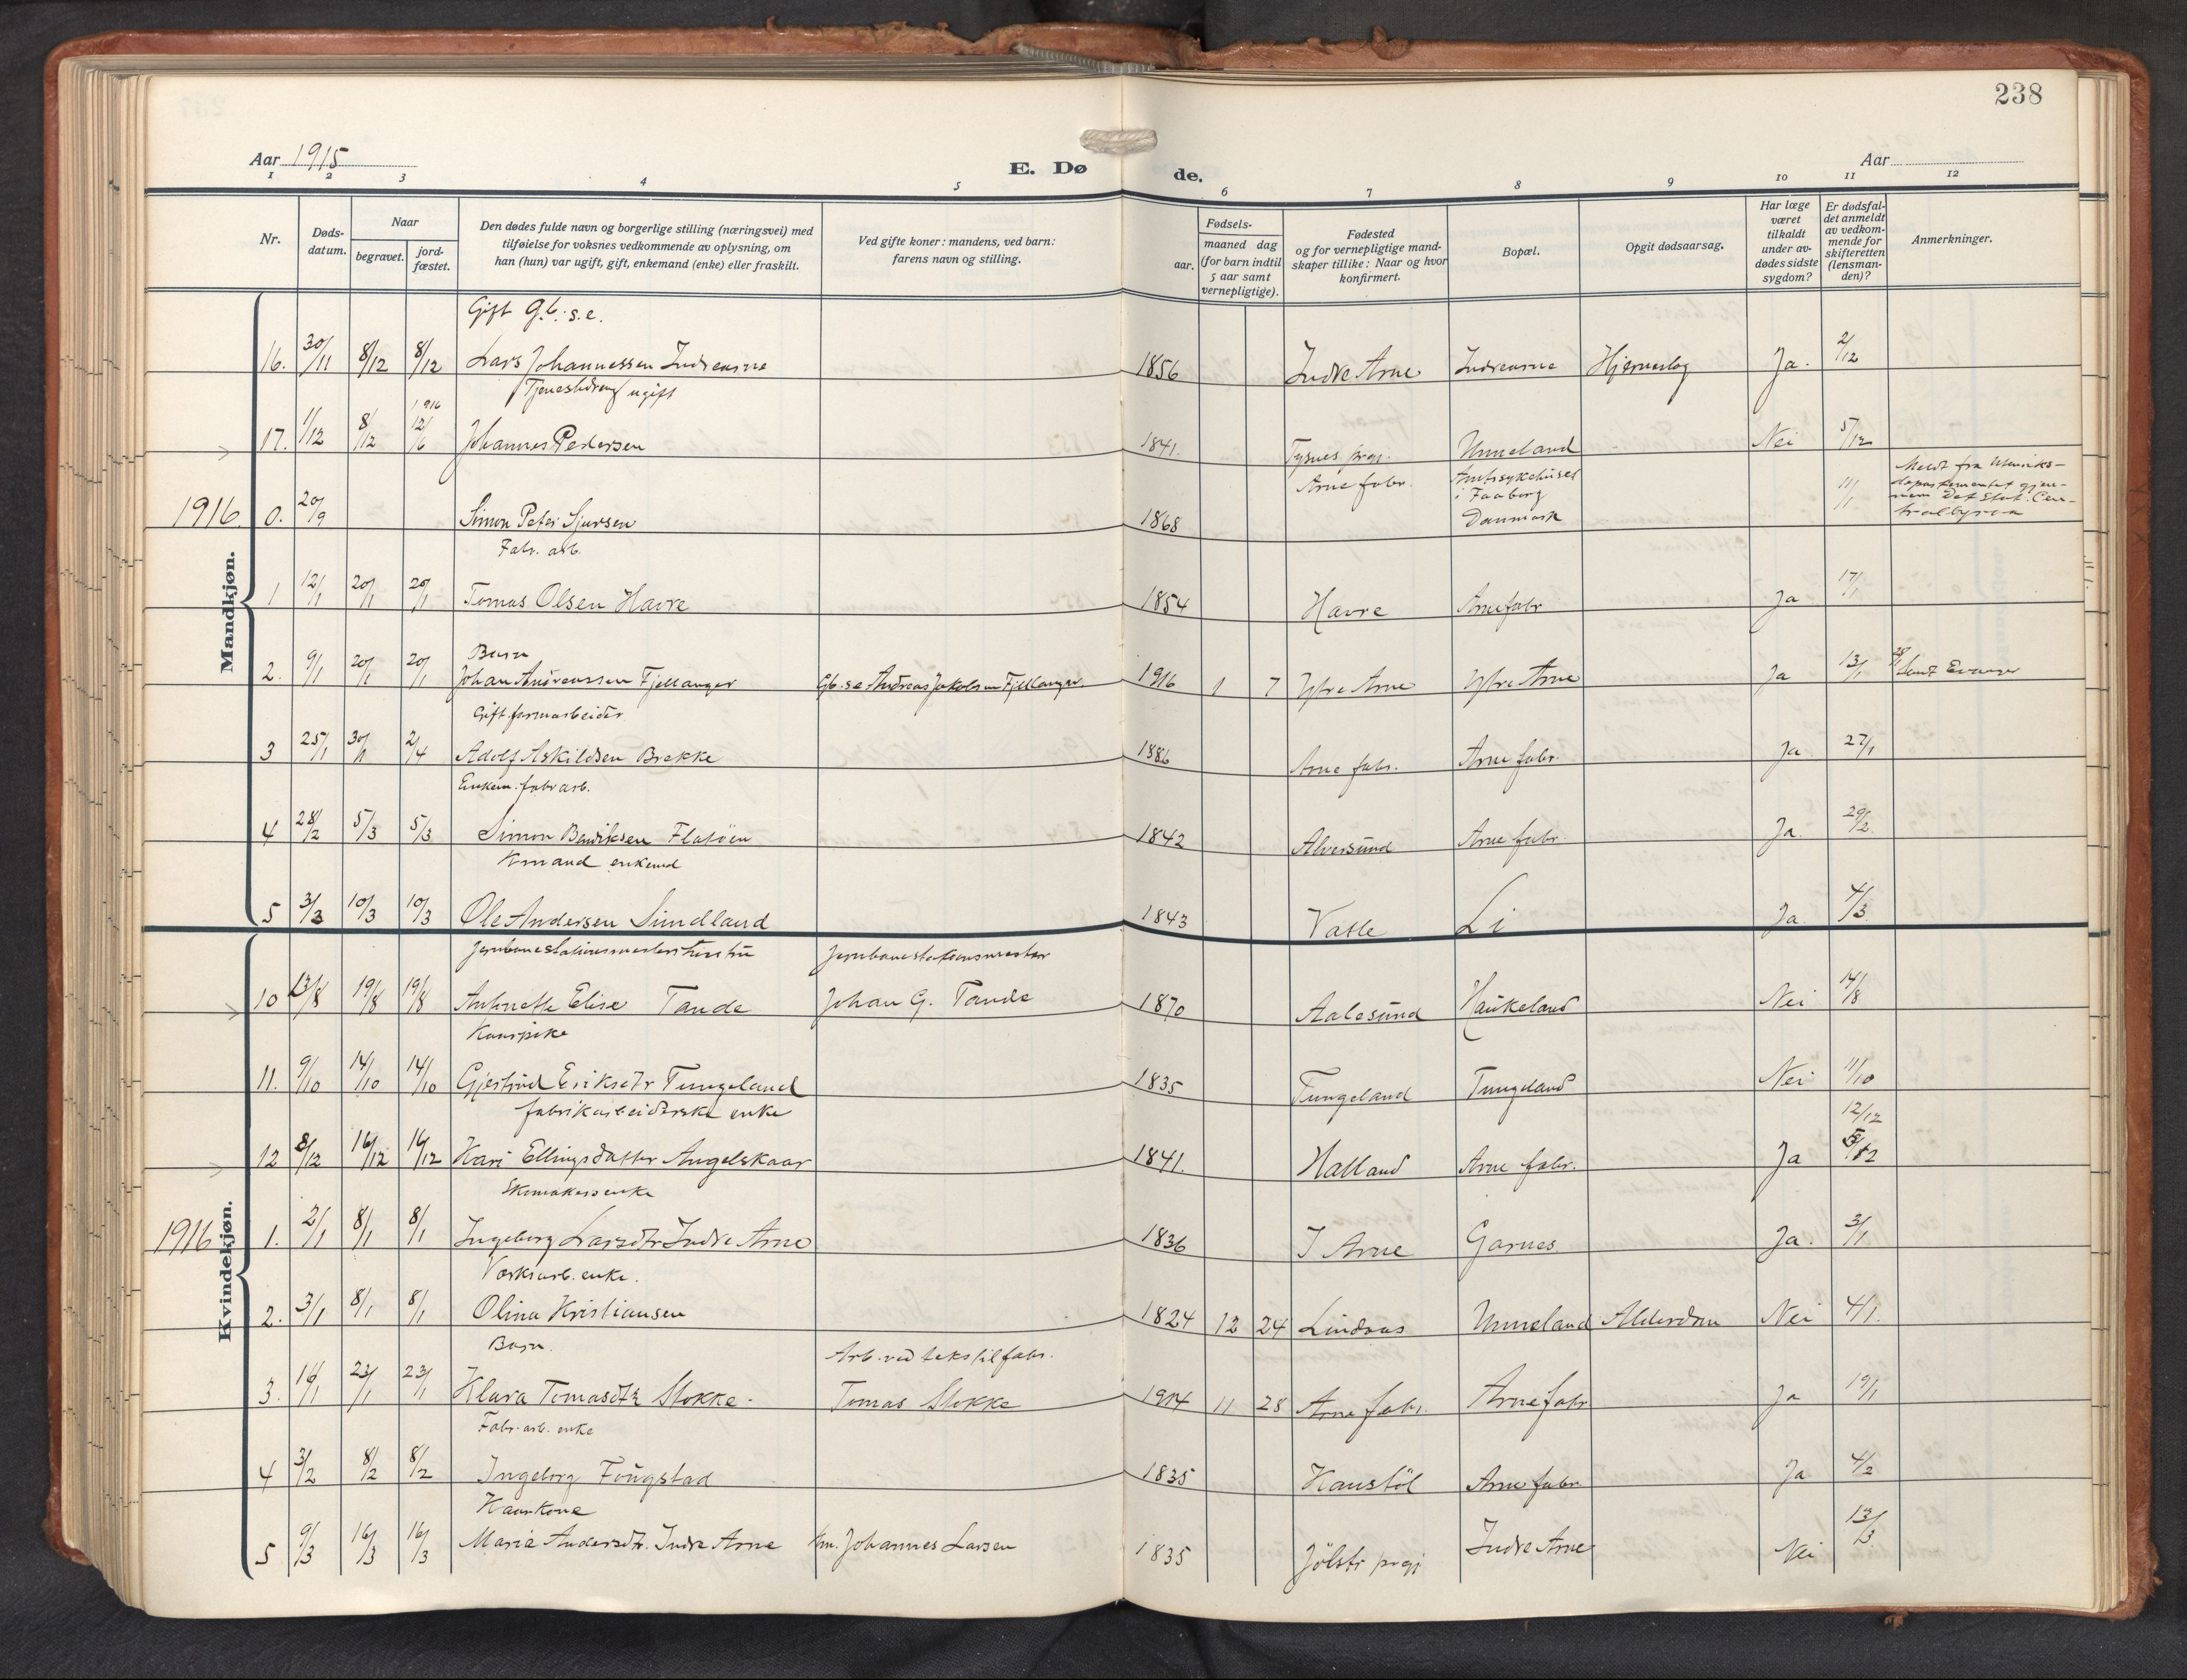 238
Aar 1915
E. Dø
de.
Aar
1 2 3 4 5 6 7 8 9 10 11 12
Nr.
Døds-
datum.
Naar
begravet.
jord-
fæstet.
Den dødes fulde navn og borgerlige stilling (næringsvei) med
tilføielse for voksnes vedkommende av oplysning, om
han (hun) var ugift, gift, enkemand (enke) eller fraskilt.
Ved gifte koner: mandens, ved barn:
farens navn og stilling.
Fødsels-
aar.
maaned dag
(for barn indtil
5 aar samt
vernepligtige).
Fødested
og for vernepligtige mand-
skaper tillike: Naar og hvor
konfirmert.
Bopæl.
Opgit dødsaarsag.
Har læge
været
tilkaldt
under av-
dødes sidste
sygdom?
Er dødsfal-
det anmeldt
av vedkom-
mende for
skifteretten
(lensman-
den)?
Anmerkninger.
Mandkjøn.
Gift G.b.s.e.
16. 30/11 8/12 8/12 Lars Johannessen Indrearne 1856 Indre Arne Indrearne Hjerneslag Ja. 2/12
Tjenestedreng ugift
1916
17. 1/12 8/12 12/6 Johannes Pedersen 1841. Tysnes prgj. Unneland - Nei 5/12
Arne fabr. Amtssykehuset
i Faaborg
Danmark
1916 0. 20/9 Simon Peter Sjursen 1868 11/1
Meldt fra Utenriks-
departementet gjen-
nem Det Stat. Cen-
tralbyraa
Fabr. arb.
1 12/1 20/1 20/1 Tomas Olsen Havre 1854 Havre Arne fabr Ja 17/1
Barn
2. 9/1 20/1 20/1 Johan Andreassen Fjellanger Gb.s.e Andreas Jakobsen Fjellanger. 1916 1 7 Ytre Arne Ytre Arne Ja 13/1 Sendt Evanger
Gift formarbeider
3 25/1 30/1 2/4 Adolf Askildsen Brekke 1886 Arne fabr. Arne fabr. Ja 27/1
Enkem. fabr arb.
4 28/2 5/3 5/3 Simon Bendiksen Flatöen 1842 Alversund Arne fabr. Ja. 29/2
Kmand enkemd
5 3/3 10/3 10/3 Ole Andersen Sundland 1843 Vatle Li Ja 4/3
Kvindekjøn.
Jernbanestationsmesters hustru Jernbanestationsmester
10 13/8 19/8 19/8 Antonette Elise Tande Johan G. Tande 1870 Aalesund Haukeland Nei 14/8
Kaarpike
11. 9/10 14/10 14/10 Gjertrud Eriksdtr Tungeland 1835 Tungeland Tungeland Nei 11/10
fabrikarbeiderske enke 12/12
12 8/12 16/12 16/12 Kari Ellingsdatter Angelskaar 1841. Hatland Arne fabr. Ja
Skomakers enke
1916 1. 2/1 8/1 8/1 Ingeborg Larsdtr Indre Arne 1836 I Arne Garnes Ja. 3/1
Værksarb. enke.
2. 3/1 8/1 8/1 Olina Kristiansen 1824 12 24 Lindaas Unneland Alderdom Nei 4/1.
Barn. Arb. ved tekstilfabr.
3. 16/1 23/1 23/1 Klara Tomasdtr Stokke. Tomas Stokke 1914 11 28 Arne fabr. Arne fabr Ja 19/1
Fabr. arb. enke
4 3/2 8/2 8/2 Ingeborg Fougstad 1835 Kaustöl Arne fabr. Ja 4/2
Kaarkone
5 9/3 16/3 16/3 Maria Andersdtr. Indre Arne Km. Johannes Larsen 1835 Jölstr prgj Indre Arne Nei 13/3